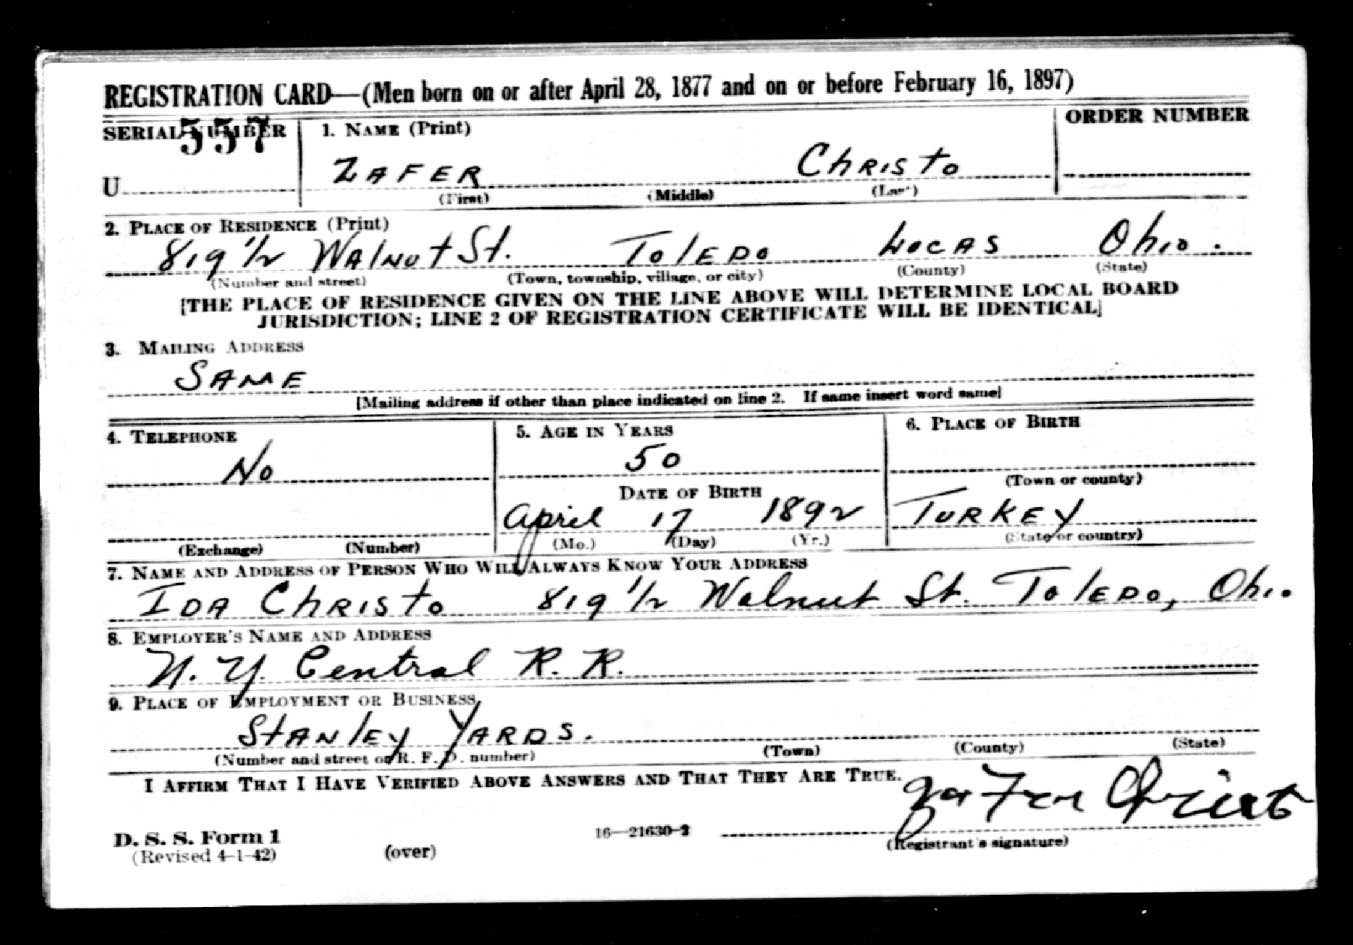 REGISTRATION CARD—(Men born on or after April 28, 1877 and on or before February 16, 1897)
SERIAL NUMBER 1. NAME (Print) ORDER NUMBER
557
U ZAFER Christo
(First) (Middle) (Last)
2. PLACE OF RESIDENCE (Print)
819 1/2 Walnut St. Toledo Lucas Ohio.
(Number and street) (Town, township, village, or city) (County) (State)
[THE PLACE OF RESIDENCE GIVEN ON THE LINE ABOVE WILL DETERMINE LOCAL BOARD
JURISDICTION; LINE 2 OF REGISTRATION CERTIFICATE WILL BE IDENTICAL]
3. MAILING ADDRESS
SAME
[Mailing address if other than place indicated on line 2. If same insert word same]
4. TELEPHONE 5. AGE IN YEARS 6. PLACE OF BIRTH
No 50
(Town or county)
DATE OF BIRTH
April 17 1892 TURKEY
(Exchange) (Number) (Mo.) (Day) (Yr.) (State or country)
7. NAME AND ADDRESS OF PERSON WHO WILL ALWAYS KNOW YOUR ADDRESS
IDA Christo 819 1/2 Walnut St. Toledo, Ohio
8. EMPLOYER'S NAME AND ADDRESS
N. Y. Central R. R.
9. PLACE OF EMPLOYMENT OR BUSINESS
Stanley Yards.
(Number and street or R. F. D. number) (Town) (County) (State)
I AFFIRM THAT I HAVE VERIFIED ABOVE ANSWERS AND THAT THEY ARE TRUE.
Zafer Christo
D. S. S. Form 1 16—21630-2
(Revised 4-1-42) (over) (Registrant's signature)